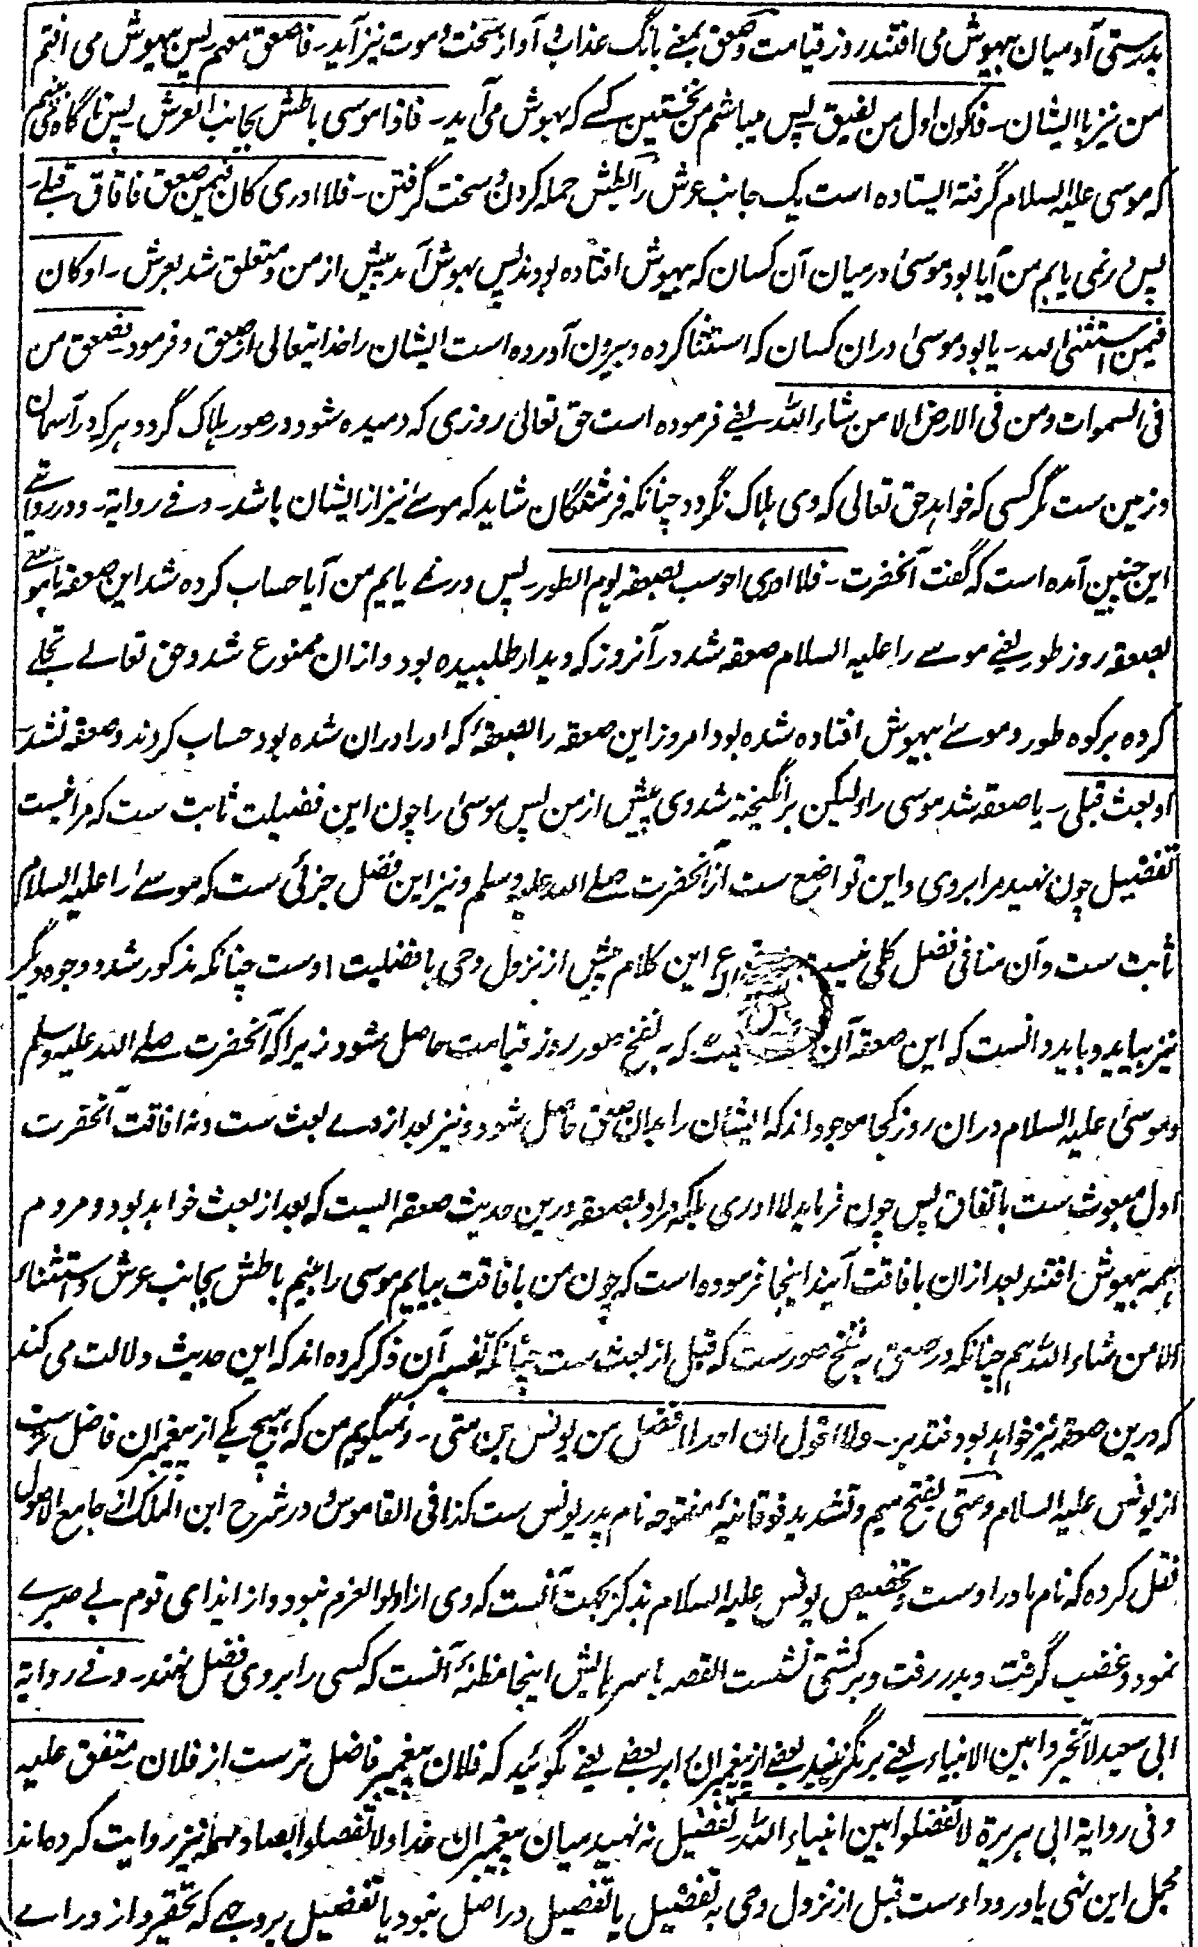 بدرستی آدمیان بیهوش می افتند روز قیامت وصعق بمعنے بانگ عذاب و آواز سخت و موت نیز آید۔ فاصعق معهم پس بیهوش می افتم
من نیز با ایشان۔ فاکون اول من یفیق پس میباشم من نخستین کسے که بهوش می آید۔ فاذا موسی باطش بجانب العرش پس ناگاه می بینم
که موسی علیه السلام گرفته ایستاده است یک جانب عرش را بطش حمله کردن و سخت گرفتن۔ فلا ادری کان فیمن صعق فافاق قبلے۔
پس در نمی یابم من آیا بود موسیٰ در میان آن کسان که بیهوش افتاده بودند پس بهوش آمد پیش از من و متعلق شد بعرش۔ او کان
فیمن استثنی الله۔ یا بود موسیٰ در ان کسان که استثنا کرده و بیرون آورده است ایشان را خدا تیعالی از صعق و فرمود فصعق من
فی السموات ومن فی الارض الا من شاء الله یعنے فرموده است حق تعالیٰ روزی که دمیده شود در صور هلاک گردد هر که در آسمان
و زمین ست مگر کسی که خواهد حق تعالی که وی هلاک نگردد چنانکه فرشتگان شاید که موسےٰ نیز از ایشان باشد۔ وفے روایة۔ و در روایتے
این چنین آمده است که گفت آنحضرت۔ فلا ادری احوسب بصعقة یوم الطور۔ پس در نے یابم من آیا حساب کرده شد این صعقه با موسے
بصعقه روز طور یعنے موسے را علیه السلام صعقه شد در آنروز که دیدار طلبیده بود و ازان ممنوع شد و حق تعالے تجلے
کرده بر کوه طور و موسےٰ بیهوش افتاده شده بود امروز این صعقه را بصعقهٔ که او را دران شده بود حساب کردند و صعقه نشد
او بعث قبلی۔ یا صعقه شد موسی را و لیکن بر انگیخته شد وی پیش از من پس موسیٰ را چون این فضیلت ثابت ست که مرا نیست
تفضیل چون نهید مرا بروی و این تواضع ست از آنحضرت صلے الله علیه وسلم و نیز این فضل جزئی ست که موسےٰ را علیه السلام
ثابت ست و آن منافی فضل کلی نیست این کلام پیش از نزول وحی با فضلیت اوست چنانکه مذکور شد و وجوه دیگر
نیز بیاید و باید دانست که این صعقه آن که به نفخ صور روز قیامت حاصل شود زیرا که آنحضرت صلے الله علیه وسلم
و موسیٰ علیه السلام دران روز کجا موجود اند که ایشان را بدان صعق حاصل شود و نیز بعد از وے بعث ست و نه افاقت آنحضرت
اول مبعوث ست باتفاق پس چون فرماید لا ادری بلکه مراد بصعقه درین حدیث صعقه ایست که بعد از بعث خواهد بود و مردم
همه بیهوش افتند بعد ازان با فاقت آیند اینجا فرموده است که چون من با فاقت بیایم موسی را بینم باطش بجانب عرش و استثناء
الا من شاء الله هم چنانکه در صعق به نفخ صور ست که قبل از بعث ست چنانکه تفسیر آن ذکر کرده اند که این حدیث دلالت می کند
که درین صعقه نیز خواهد بود فتدبر۔ ولا اقول ان احدا افضل من یونس بن متی۔ و نمیگویم من که هیچ یکے از پیغمبران فاضل تر ست
از یونس علیه السلام و متی بفتح میم و تشدید فوقانیهٔ مفتوحه نام پدر یونس ست کذا فی القاموس و در شرح ابن الملک از جامع الاصول
نقل کرده که نام مادر اوست و تخصیص یونس علیه السلام بذکر بجهت آنست که وی از اولوالعزم نبود و از ایذای قوم بے صبرے
نمود و غضب گرفت و بدر رفت و بر کشتی نشست القصه با سرهایش اینجا مظنهٔ آنست که کسی را بروی فضل نهند۔ وفے روایة
ابی سعید لا تخیروا بین الانبیاء یعنے بر نگزینید بعضے از پیغمبران را بر بعضے یعنے نگوئید که فلان پیغمبر فاضل تر ست از فلان۔ متفق علیه
وفی روایة ابی هریرة لا تفضلوا بین انبیاء الله تفضیل نه نهید میان پیغمبران خدا و لا تفصلوا بصاد مهمله نیز روایت کرده اند
محمل این نهی یا ورود اوست قبل از نزول وحی به تفضیل یا تفضیل در اصل نبوت یا تفضیل بر وجهے که تحقیر و ازدراے